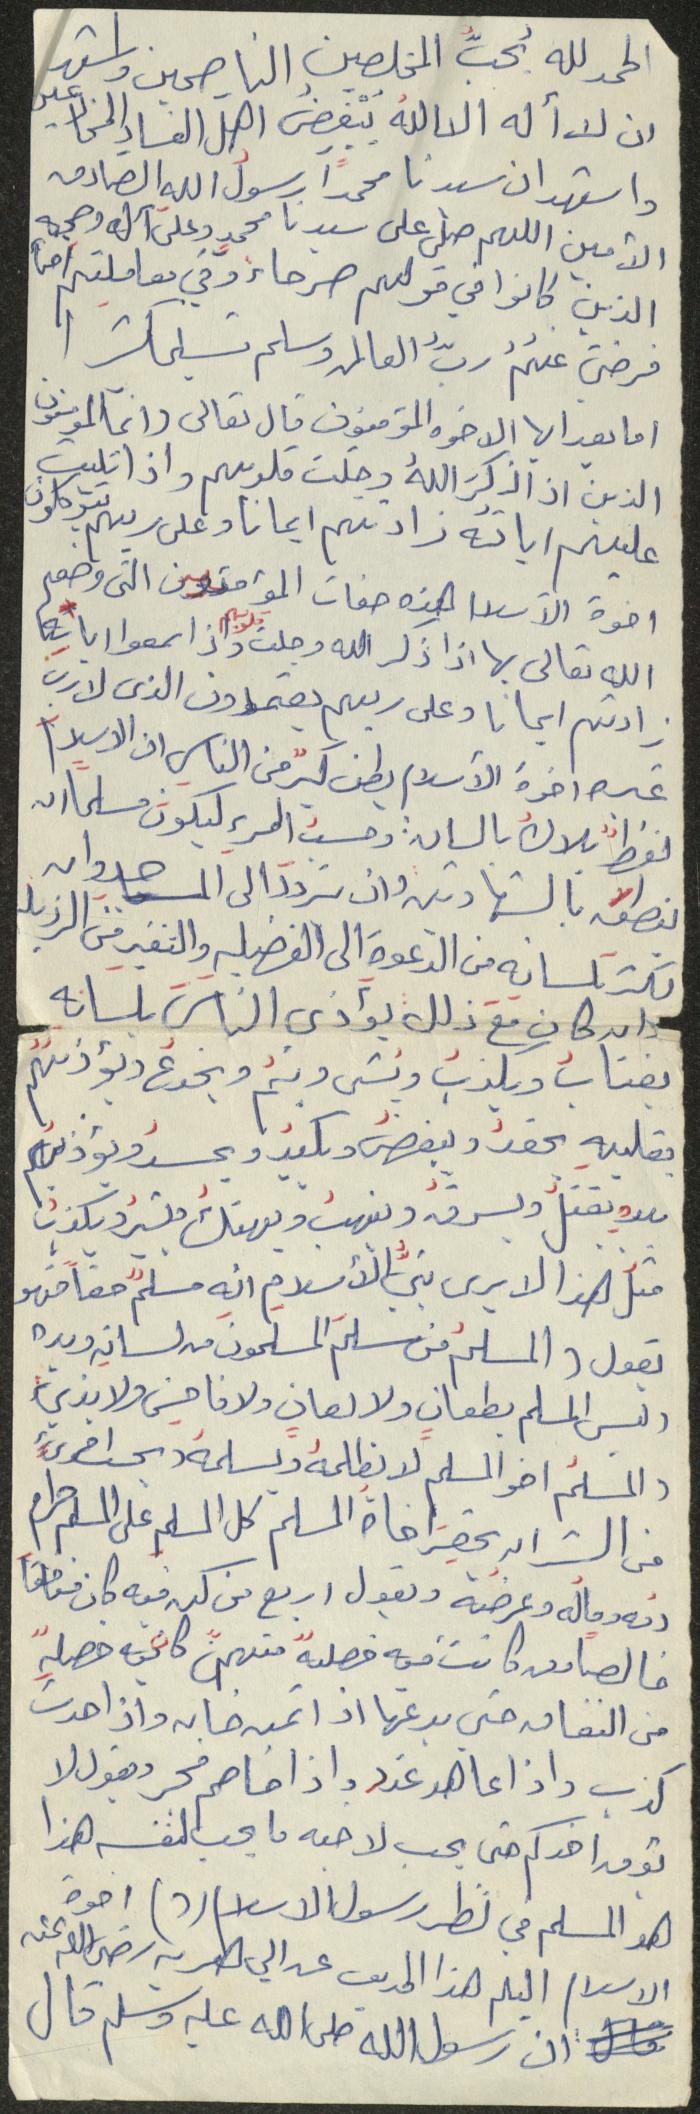 الحمد لله يُحبُّ المخلصين الناصحين واشهد
ان لا أله الا اللهُ يَبْغِضُ اهل الفساد والمخادعين
واشهد ان سيدنا محمداً رسولُ الله الصادق
الأمين اللهم صلى على سيدنا محمدٍ وعلى آله وصحبه
الذين كانوا في قولهم صرحاء وفي معاملتهم امناء
فرضى عنهُمُ ربُّ العالمين وسلم تسليما كثيرا
اما بعد ايها الاخوه المؤمنون قال تعالى (انمّا المؤمنون
الذين اذا ذُكِرَ اللهُ وجلت قلوبهم واذا تليت
عليهم اياته زادتهم ايمانا وعلى ربهم يتوكلون
اخوة الأسلام هذه صفات المؤمنين التى وضعهم
الله تعالى بها اذا ذُكر الله وجلت قلوبهم واذا سمعوا اياته
زادتهم ايمانا وعلى ربهم يعتمدون الذى لا رب
غيره اخوة الأسلام يظن كثيرٌ من الناس ان الاسلام
لفظٌ يلاك بالسان: وحسب المرء ليكون مسلما ان
ينطق بالشهادتين وان يتردد الى المساجد وان
يكثر بلسانه من الدعوة الى الفضيله والتنفير من الرذيله
وان كان مع ذلك يؤذى الناسَ بلسانه
يغتابُ ويكذبُ ويشى وينمُ ويخدعُ ويؤذيهم
بقلبهِ يحقدُ ويبغضُ ويكيدُ ويحسدُ ويؤذيهم
بيدهِ يقتلُ ويسرقُ وينهبُ ويهتكُ ويشيرُ ويكذبُ
مثلُ هذا لا يرى نبيُّ الأسلامِ انه مسلمٌ حقاً فهو
يقول (المسلمُ من سلمَ المسلمون من لسانهِ ويده
وليس المسلم بطعانٍ ولا لعانٍ ولا فاحشٍ ولا بذيءٍ
(المسلمُ اخو المسلم لا يظلمهُ ويسلمهُ وبحسب امرىءٍ
من الشر ان يحقِرَ اخاهُ المسلم كل المسلم على المسلم حرام
دمه وماله وعرضه ويقول اربع من كن فيه كان منافقاً
خالصا ومن كانت فيه خصلةٌ منهن كانت فيه خصلةٌ
من النفاق حتى يدعها اذا ائتمن خان واذا حدث
كذب واذا عاهد غدر واذا خاصم فجر ويقول لا
يؤمن احدكم حتى يحب لاخيه ما يحب لنفسه هذا
هو المسلم في نظر رسول الاسلام (ص) اخوة
الاسلام اليكم هذا الحديث عن ابي هريرة رضى الله عنه
ان رسول الله صلى الله عليه وسلم قال